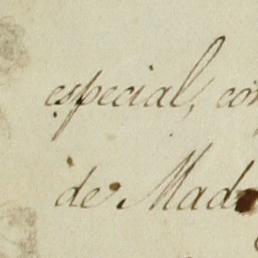 especial, co
de Mad